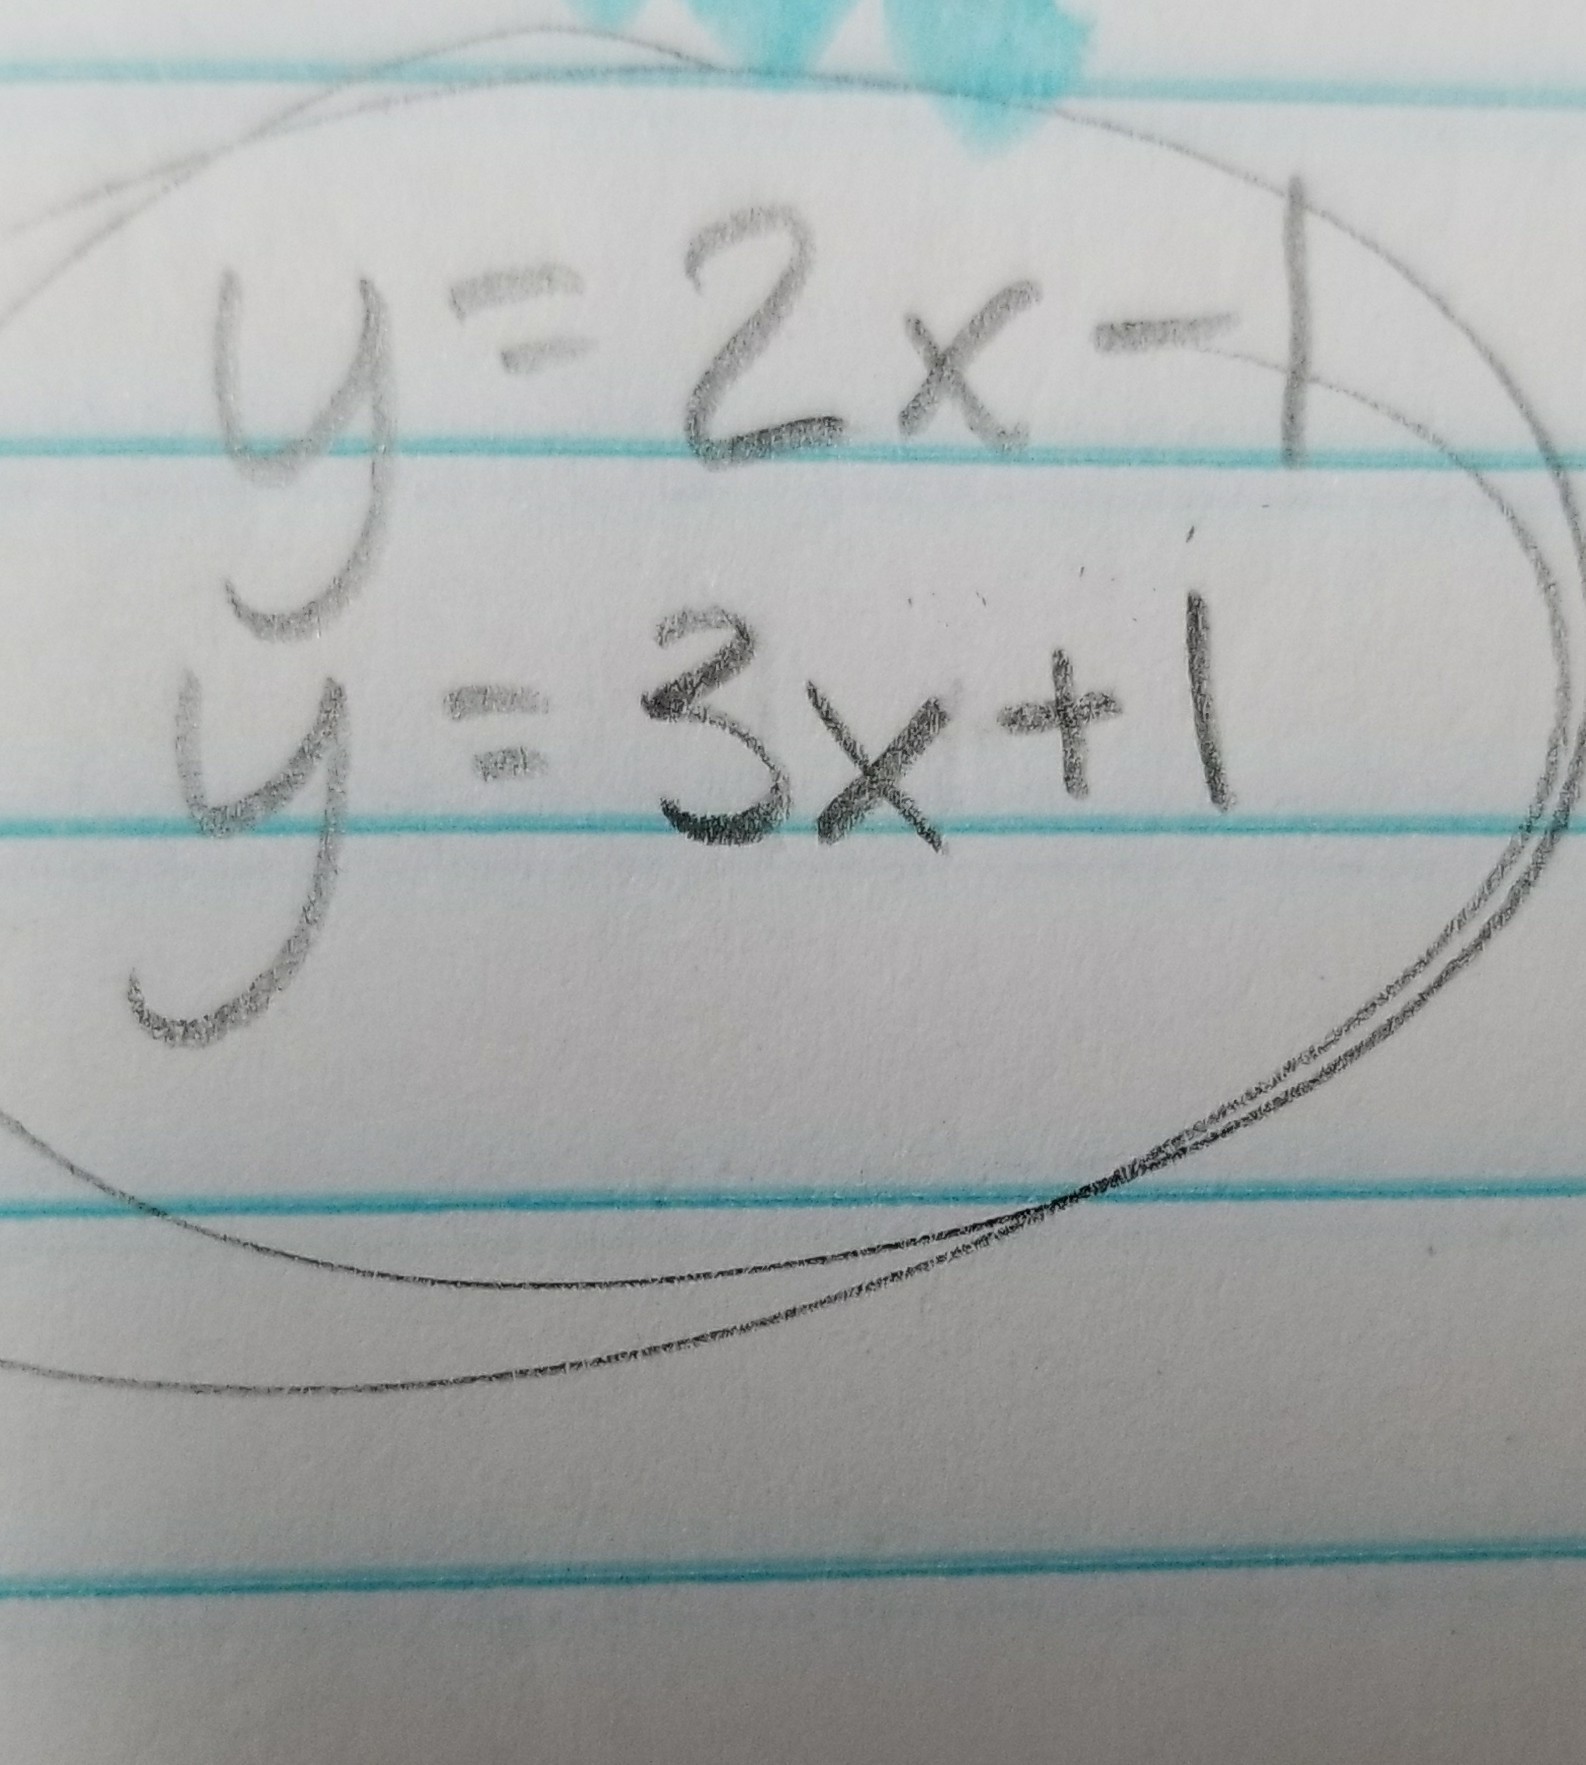 y = 2x - 1
y = 3x + 1